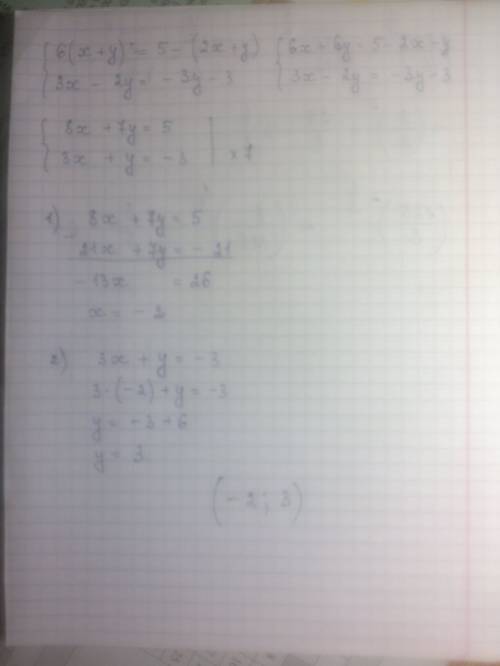 { 6(x+y) = 5 - (2x+y) { 6x + 6y = 5 - 2x - y
{ 3x - 2y = -3y - 3 { 3x - 2y = -3y - 3
{ 8x + 7y = 5 |
{ 3x + y = -3 | × 7
1) 8x + 7y = 5
21x + 7y = -21
-13x = 26
x = -2
2) 3x + y = -3
3·(-2) + y = -3
y = -3 + 6
y = 3
(-2; 3)